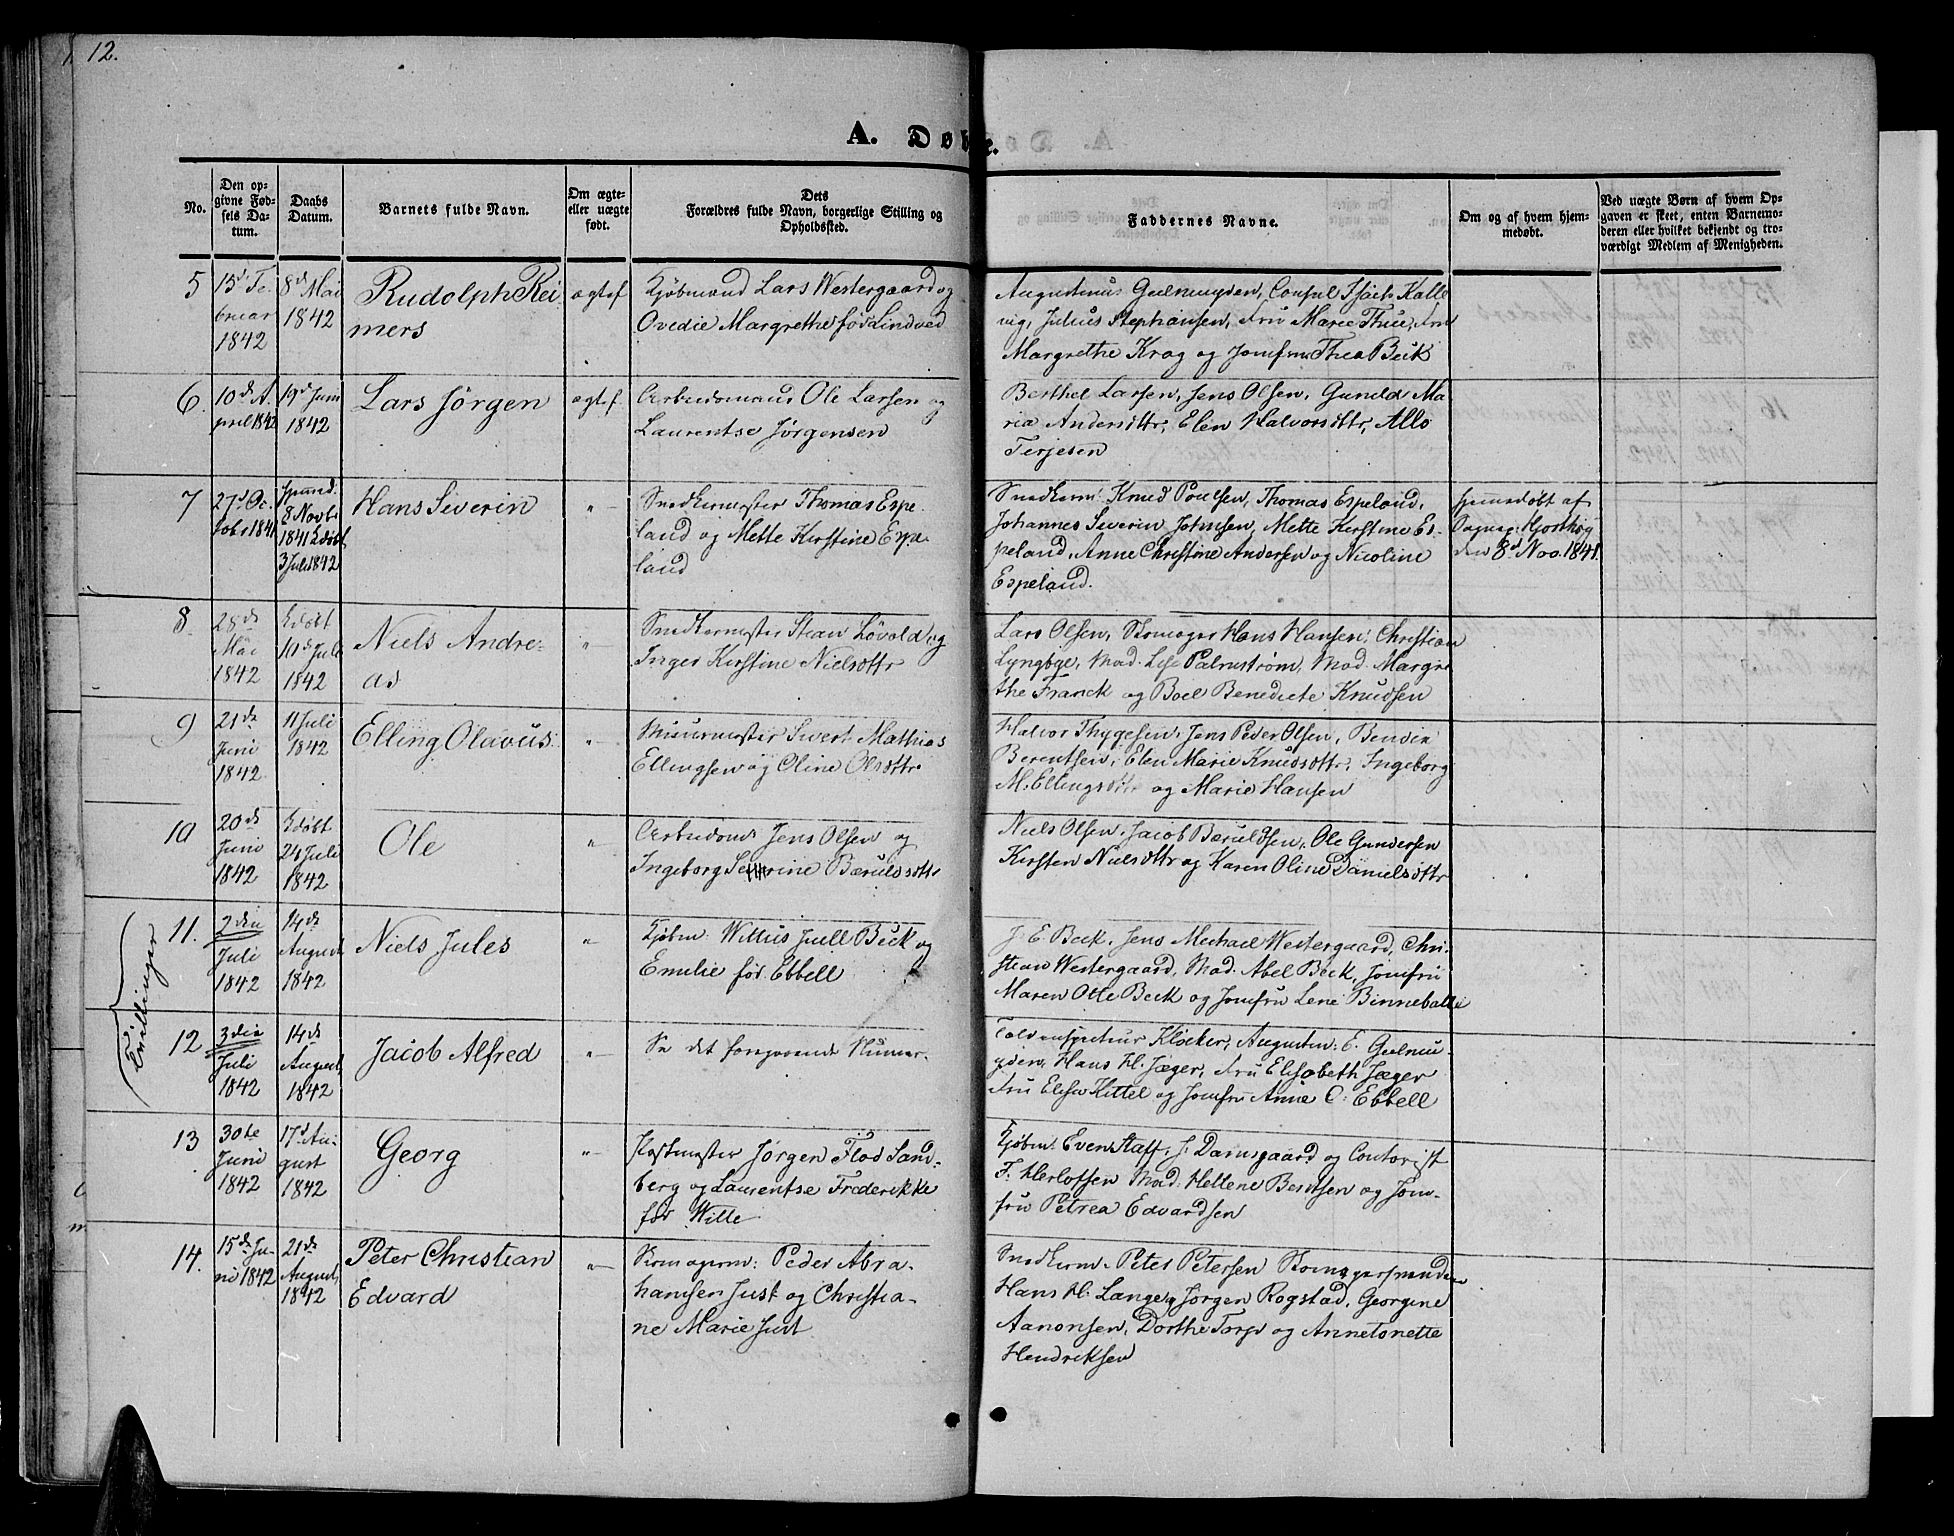 12.
A. Døbte.
No.
Den opgivne Fødsels Datum.
Daabs Datum.
Barnets fulde Navn.
Om ægte- eller uægte født.
Dets Forældres fulde Navn, borgerlige Stilling og Opholdssted.
Faddernes Navne.
Om og af hvem hjemmedøbt.
Ved uægte Børn af hvem Opgaven er skeet, enten Barnemoderen eller hvilket bekjendt og troværdigt Medlem af Menigheden.
5
15d Februar 1842
8d Mai 1842
Rudolph Rei
mers
ægtef
Kjøbmand Lars Westergaard og
Ovedie Margrethe før Lindved
Augustinus Gulmuyden, Consul Isach Kalle
vig, Julius Stephansen, Fru Maree Thue, Fru
Margrethe Krag og Jomfru Thea Beck
6.
10d April 1842
19d Juni 1842
Lars Jørgen
ægtef.
Arbeidsmand Ole Larsen og
Laurentse Jørgensen
Berthel Larsen, Jens Olsen, Gunild Ma
ria Andersdttr, Elen Halvorsdttr, Allo
Terjesen
7
27d Octobr 1841
8 Novbr 1841 Kdøbt 3 Juli 1842
Hans Severin
"
Snedkermester Thomas Espe
land og Mette Kirstine Espe
land
Snedkerm: Knud Poulsen, Thomas Espeland,
Johannes Severin Johnsen, Mette Kirstine Es
peland, Anne Christine Andersen og Nicoline
Espeland.
hjemedøbt af
Hjorthøg
den 8d Nov. 1841.
8
28de Mai 1842
Kdøbt 10d Juli 1842
Niels Andre-
as
"
Snedkermester Stean Løvold og
Inger Kirstine Nielsdttr
Lars Olsen, Skomager Hans Hansen, Christian
Lyngbye, Mad. Lise Palmstrøm, Mad. Margre
the Franck og Boel Benedicte Knudsen
9
21de Juni 1842
11 Juli 1842
Elling Olavus
"
Muurmester Sivert Mathias
Ellingsen og Oline Olsdttr
Halvor Thygesen, Jens Peder Olsen, Bendix
Berentsen, Elen Marie Knudsdttr, Ingeborg
M. Ellingsdttr og Marie Hansen
10
20de Juni 1842
Kdøbt 24 Juli 1842
Ole
"
Arbeidsmd Jens Olsen og
Ingeborg Severine Bærulsdttr
Niels Olsen, Jacob Bæruldsen, Ole Gundersen
Kirsten Nielsdttr og Karen Oline Danielsdttr
Tvillinger
11.
2den Juli 1842
14de August 1842
Niels Jules
"
Kjøbm: Willius Juell Beck og
Emilie før. Ebbell
J. E. Beck, Jens Michael Westergaard, Chri-
stian Westergaard, Mad. Abel Beck, Jomfru
Maren Otte Beck og Jomfru Lene Binneballe
12
3die Juli 1842
14de August 1842
Jacob Alfred
"
Se det foregaaende Numer.
Toldinspecteur Kløcker, Augustin: E. Gulmu-
yden, Hans H. Jæger, Fru Elisabeth Jæger
Fru Elisen Kittel og Jomfru Anne C. Ebbell
13
30te Juni 1842
17d August 1842
Georg
"
Postmester Jørgen Flod Sand-
berg og Laurentse Frederikke
før Wille
Kjøbm: Even Staff, J. Damsgaard og Contorist
F. Herlofsen Mad: Hellene Berntsen og Jom-
fru Petrea Edvardsen
14.
15de Juni 1842
21de August 1842
Peter Christian
Edvard
"
Skomagerm: Peder Abra-
hamsen Just og Christia-
ne Marie Just
Snedkerm. Peter Petersen Skomagersvend
Hans H. Lange, Jørgen Rogstad, Georgine
Aanonsen, Dorthe Torp og Annetonette
Hendriksen